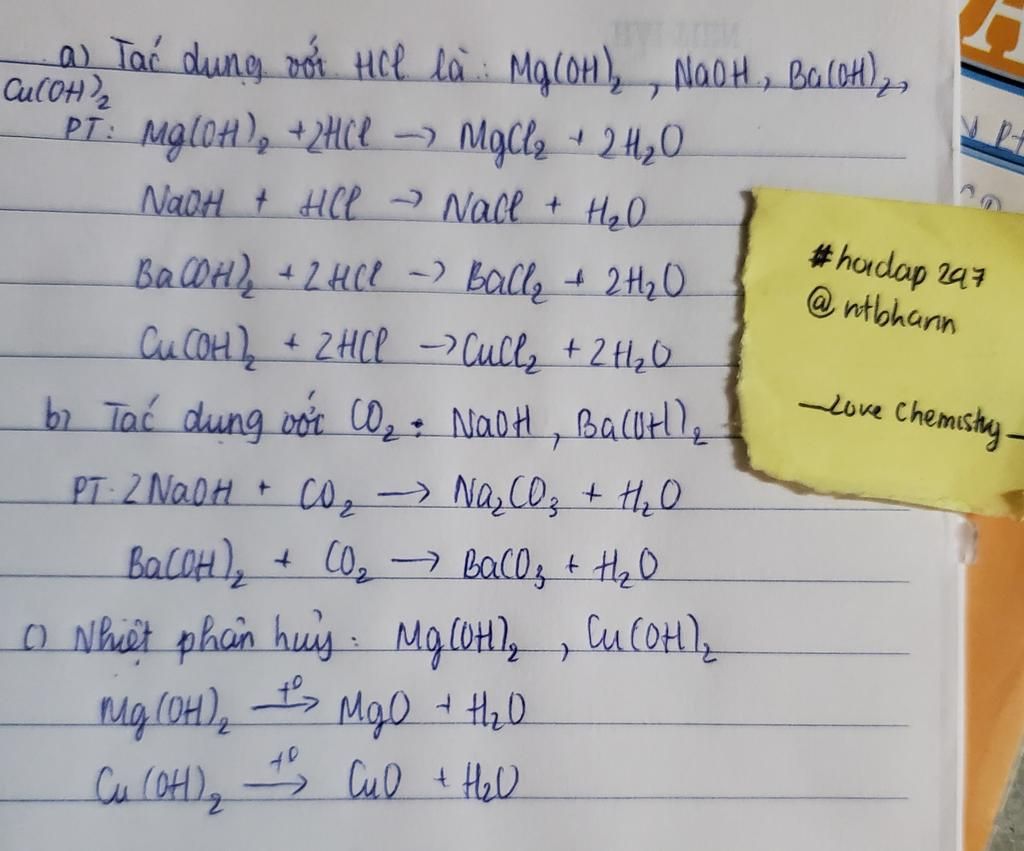 a) Tác dụng với HCl là: Mg(OH)₂, NaOH, Ba(OH)₂,
Cu(OH)₂
PT: Mg(OH)₂ + 2HCl → MgCl₂ + 2H₂O
NaOH + HCl → NaCl + H₂O
Ba(OH)₂ + 2HCl → BaCl₂ + 2H₂O
Cu(OH)₂ + 2HCl → CuCl₂ + 2H₂O
b) Tác dụng với CO₂: NaOH, Ba(OH)₂
PT: 2NaOH + CO₂ → Na₂CO₃ + H₂O
Ba(OH)₂ + CO₂ → BaCO₃ + H₂O
c) Nhiệt phân huỷ: Mg(OH)₂, Cu(OH)₂
Mg(OH)₂ →(t⁰) MgO + H₂O
Cu(OH)₂ →(t⁰) CuO + H₂O
#hoidap247
@ntbhann
—Love Chemistry—